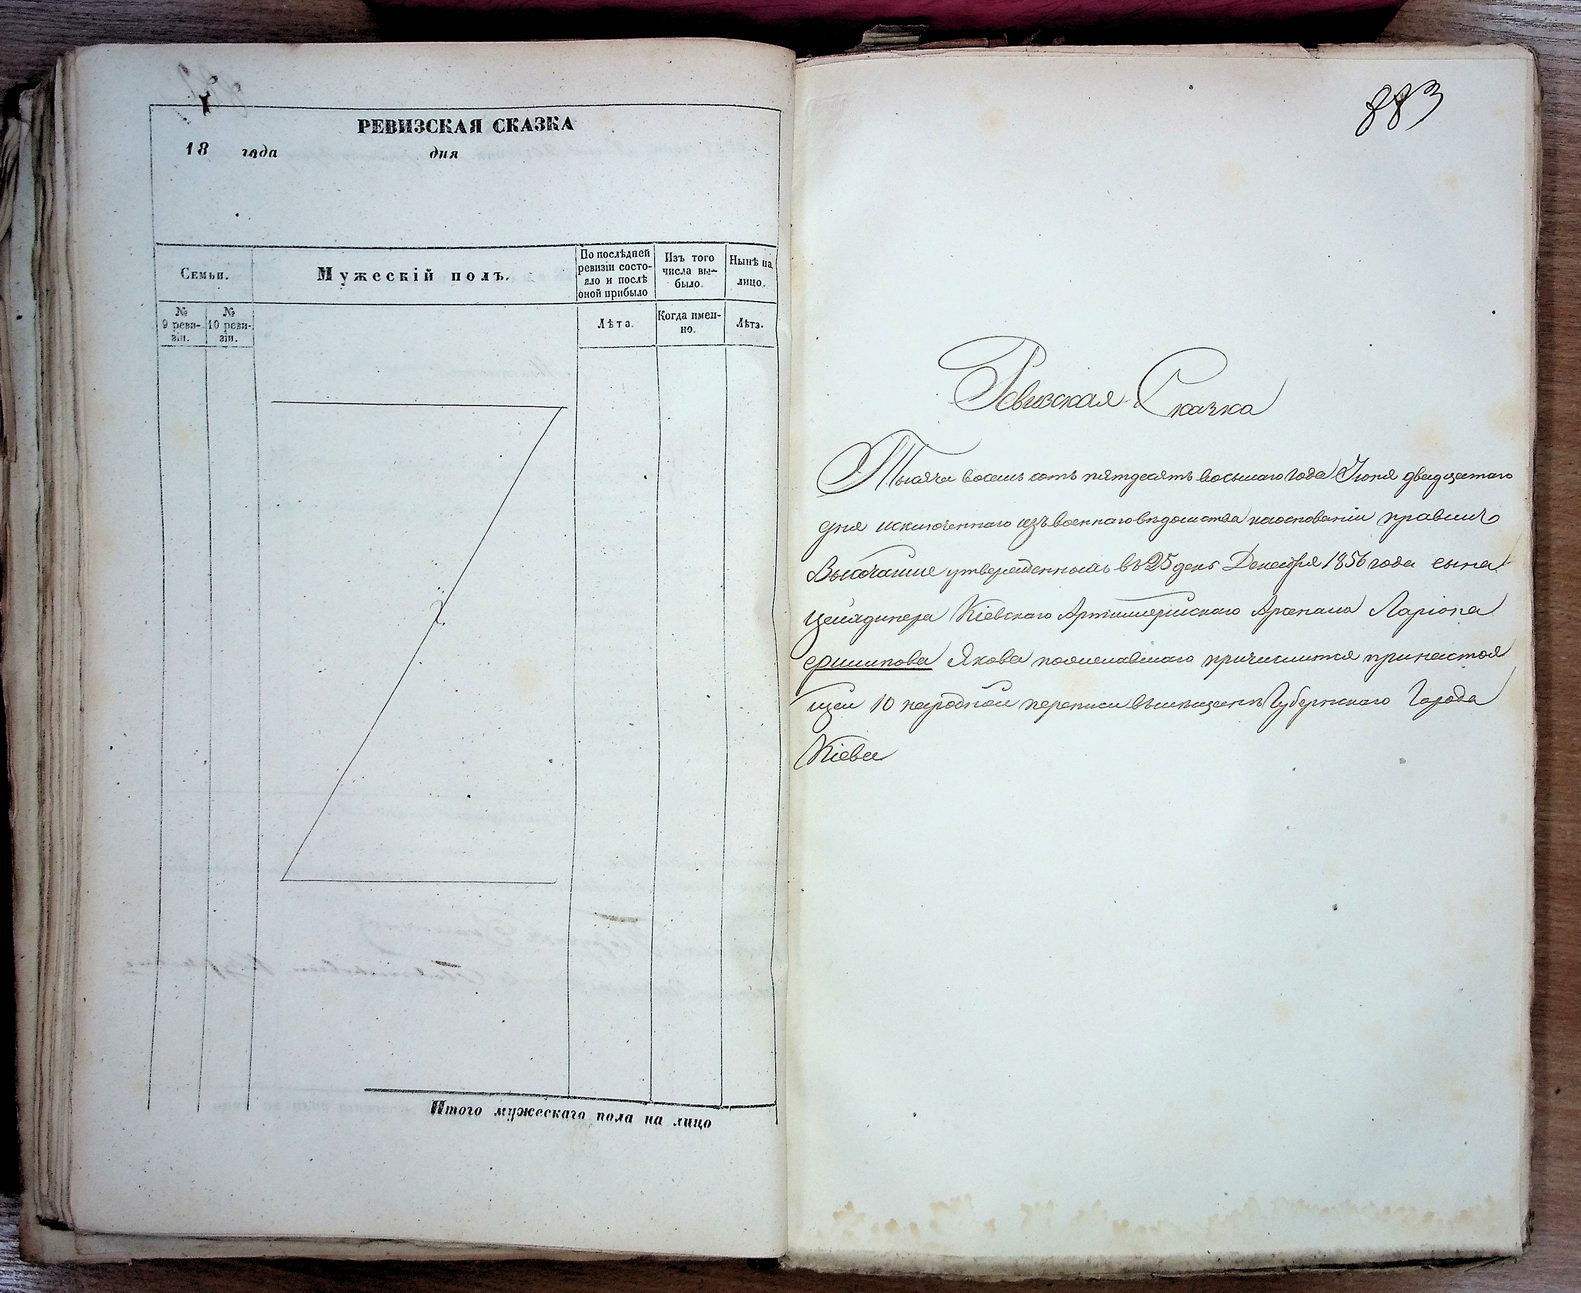 РЕВИЗСКАЯ СКАЗКА
18 года дня
Семьи.
Мужескій полъ.
По послѣдней
ревизіи состо-
яло и послѣ
оной прибыло
Изъ того
числа вы-
было.
Нынѣ на
лицо.
№
9 реви-
зіи.
№
10 реви-
зіи.
Лѣта.
Когда имен-
но.
Лѣта.
Итого мужескаго пола на лицо
883
Ревизская Сказка
Тысяча восемь сотъ пятдесятъ восьмаго года Іюня двадцатаго
дня исключеннаго изъ военнаго вѣдомства на основаніи правилъ
Высочайше утвержденныхъ въ 25 день Декабря 1856 года сына
цейхдинера Кіевскаго Артиллерійскаго Арсенала Ларіона
Филипова Якова пожелавшаго причислится при настоя
щей 10 народной переписи въ мѣщане Губернскаго Города
Кіева